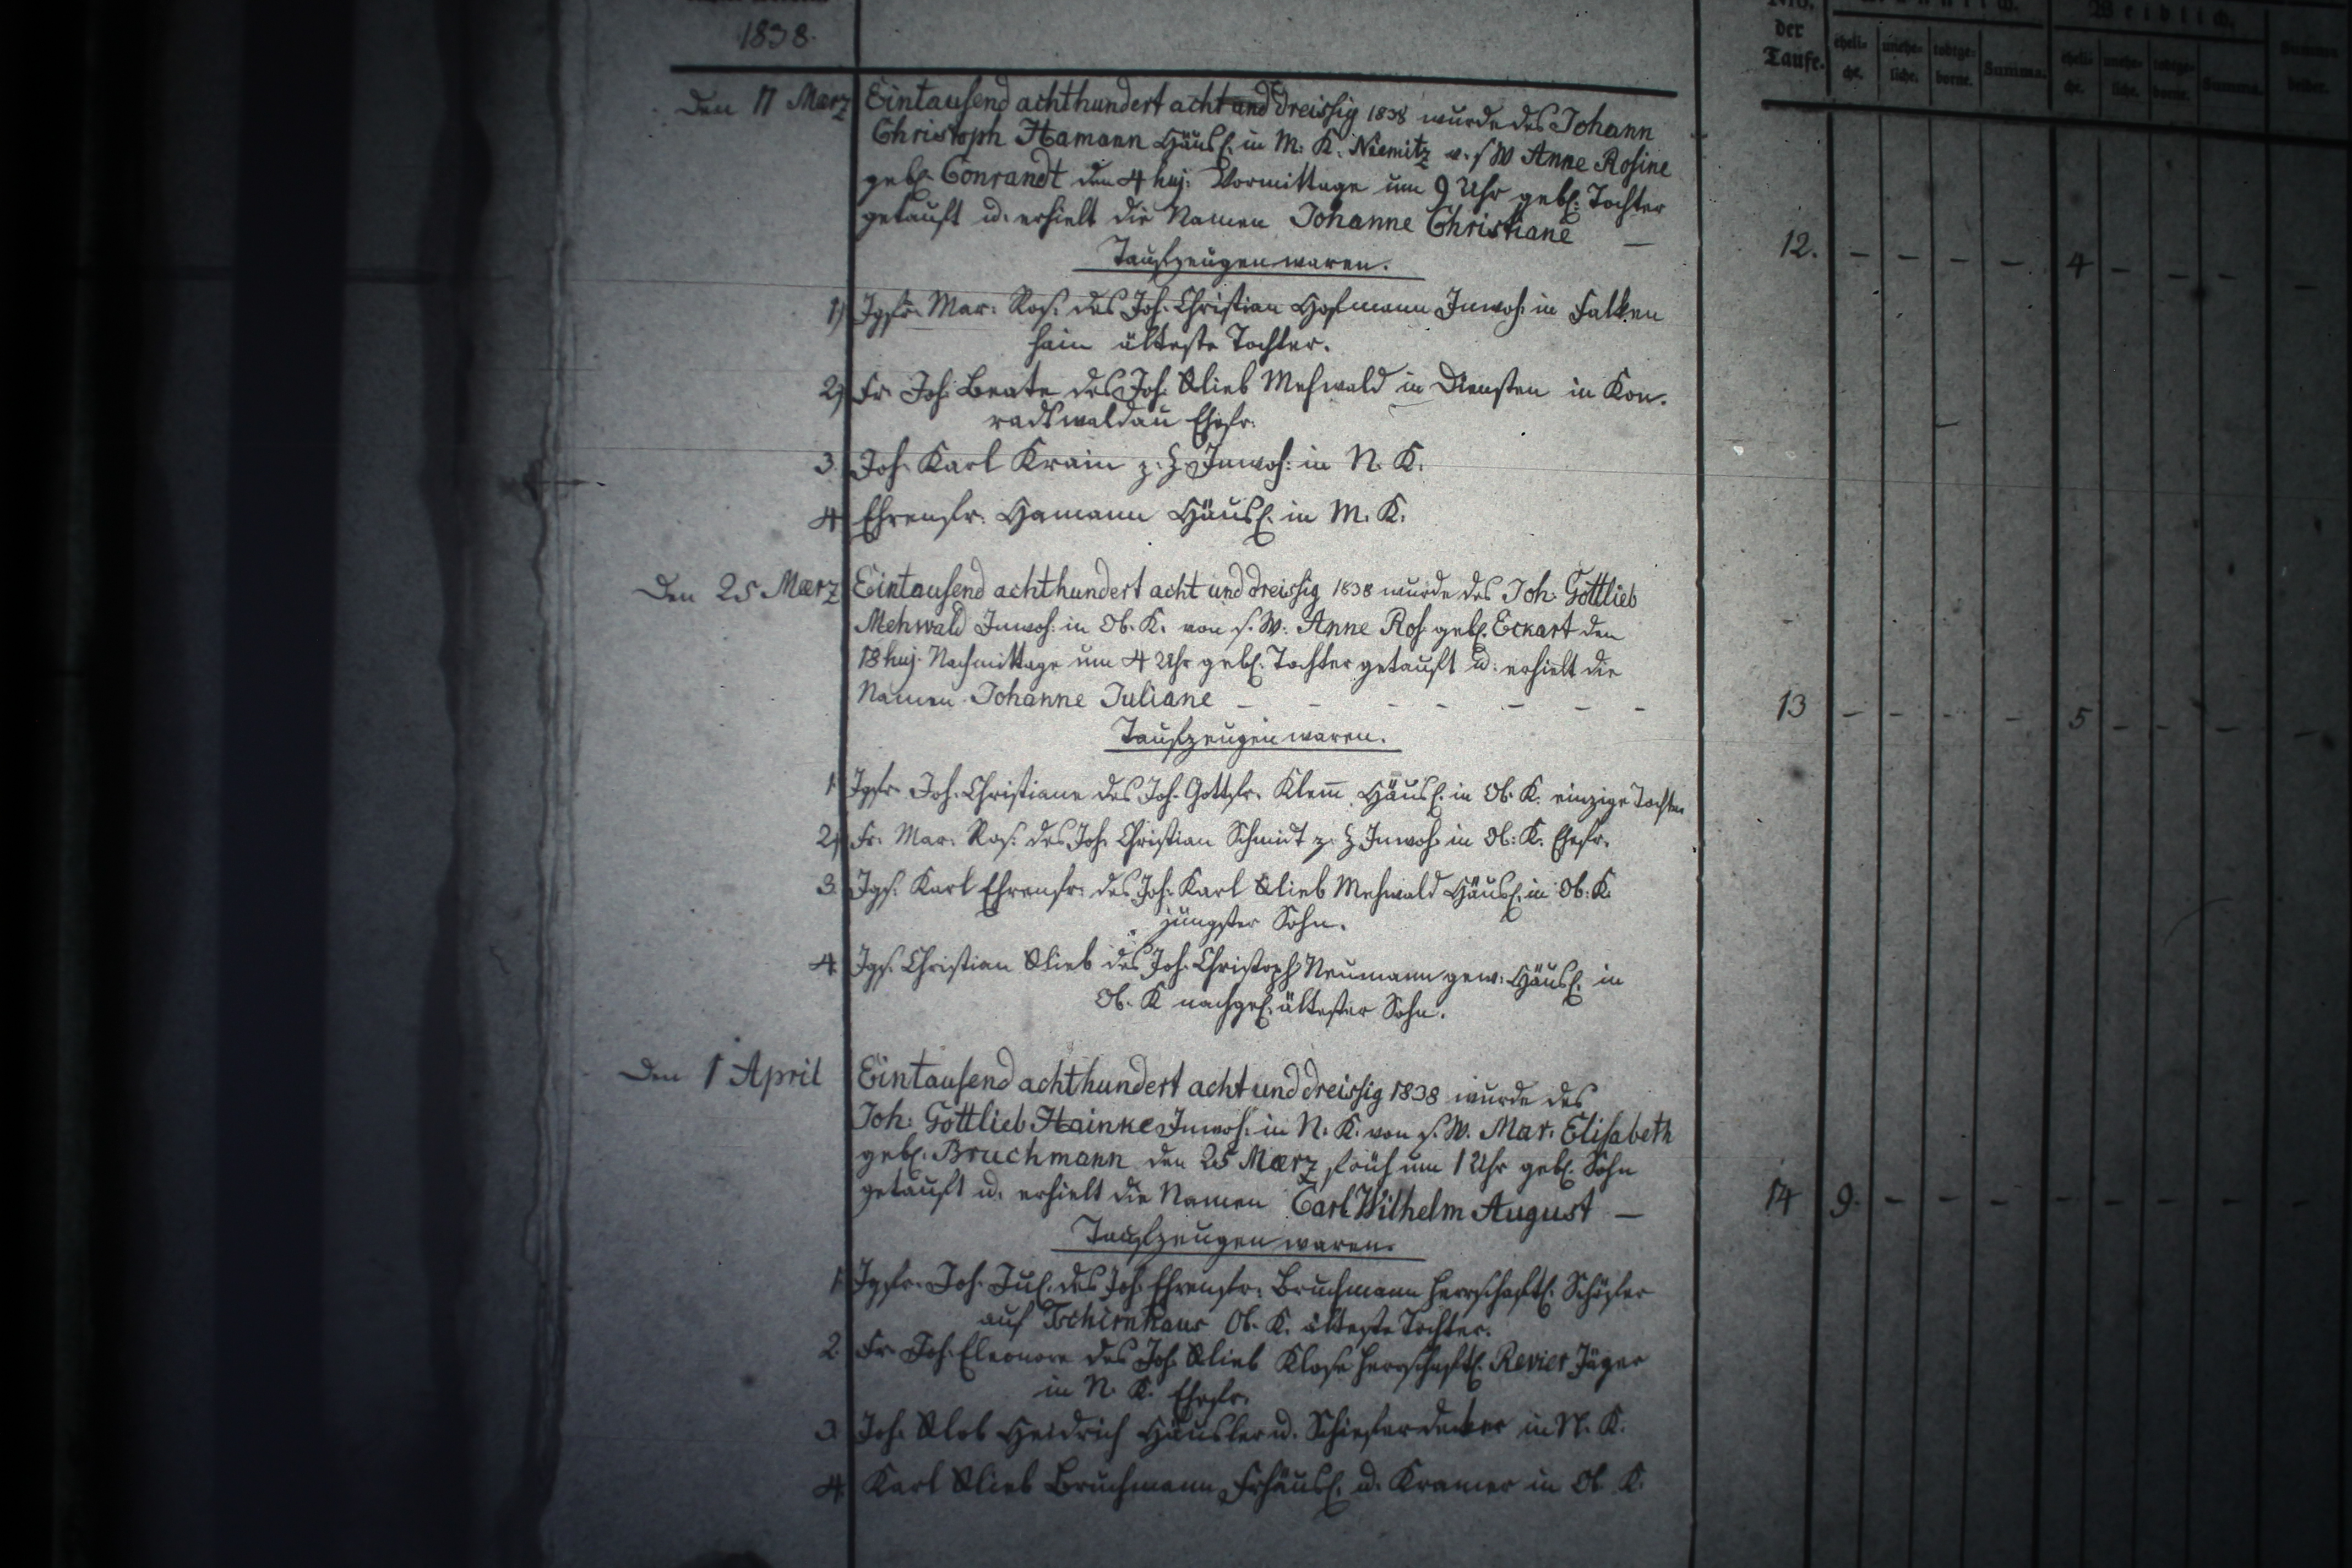 1838.
Nro.
der
Taufe.
eheli-
che.
unehe-
liche.
todtge-
borne.
Summa.
Weiblich.
eheli-
che.
unehe-
liche.
todtge-
borne.
Summa.
Summa
beider.
Den 11 Maerz Eintausend achthundert acht und dreissig 1838 wurde des Johann
Christoph Hamann Häusl. in M. K. Niemitz v. s W Anne Rosine
gebl. Conrandt den 4 huj. Vormittags um 9 Uhr gebl. Tochter
getauft u. erhielt die Namen Johanne Christiane —
12. – – – – 4 – – – –
Taufzeugen waren.
1) Jgfr. Mar. Ros. des Joh. Christian Hofmann Inwoh. in Falken
hain älteste Tochter.
2) Fr. Joh. Beate des Joh. Glieb Mehwald in Diensten in Kon-
radtswaldau Ehefr.
3. Joh. Karl Krain z. Z. Inwoh. in N. K.
4 Ehrenfr. Hamann Häusl. in M. K.
Den 25 Maerz Eintausend achthundert acht und dreissig 1838 wurde des Joh. Gottlieb
Mehwald Inwoh. in Ob. K. von s. W. Anne Ros. gebl. Eckart den
18 huj. Nachmittags um 4 Uhr gebl. Tochter getauft u. erhielt die
Namen Johanne Juliane – – – – – – –
13 – – – – 5 – – – –
Taufzeugen waren.
1. Jgfr. Joh. Christiane des Joh. Gottfr. Klem̄ Häusl. in Ob. K. einzige Tochter
2) Fr. Mar. Ros. des Joh. Christian Schmidt z. Z Inwoh. in Ob. K. Ehefr.
3. Jgs. Karl Ehrenfr. des Joh. Karl Glieb Mehwald Häusl. in Ob. K.
jüngster Sohn.
4. Jgs. Christian Glieb des Joh. Christoph Neumann gew. Häusl. in
Ob. K nachgel. ältester Sohn.
Den 1 April Eintausend achthundert acht und dreissig 1838 wurde des
Joh. Gottlieb Hainke Inwoh. in N. K. von s. W. Mar. Elisabeth
gebl. Bruchmann den 25 Maerz früh um 1 Uhr gebl. Sohn
getauft u. erhielt die Namen Carl Wilhelm August —
14 9. – – – – – – – –
Taufzeugen waren.
1. Jgfr. Joh. Jul. des Joh. Ehrenfr. Bruchmann herrschaftl. Schäfer
auf Tschirnhaus Ob. K. älteste Tochter.
2. Fr. Joh. Eleonore des Joh. Glieb Klose herrschaftl. Revier Jäger
in N. K. Ehefr.
3. Joh. Glob Heidrich Häusler u. Schieferdecker in N. K.
4 Karl Glieb Bruchmann Frhäusl. u. Kramer in Ob K.